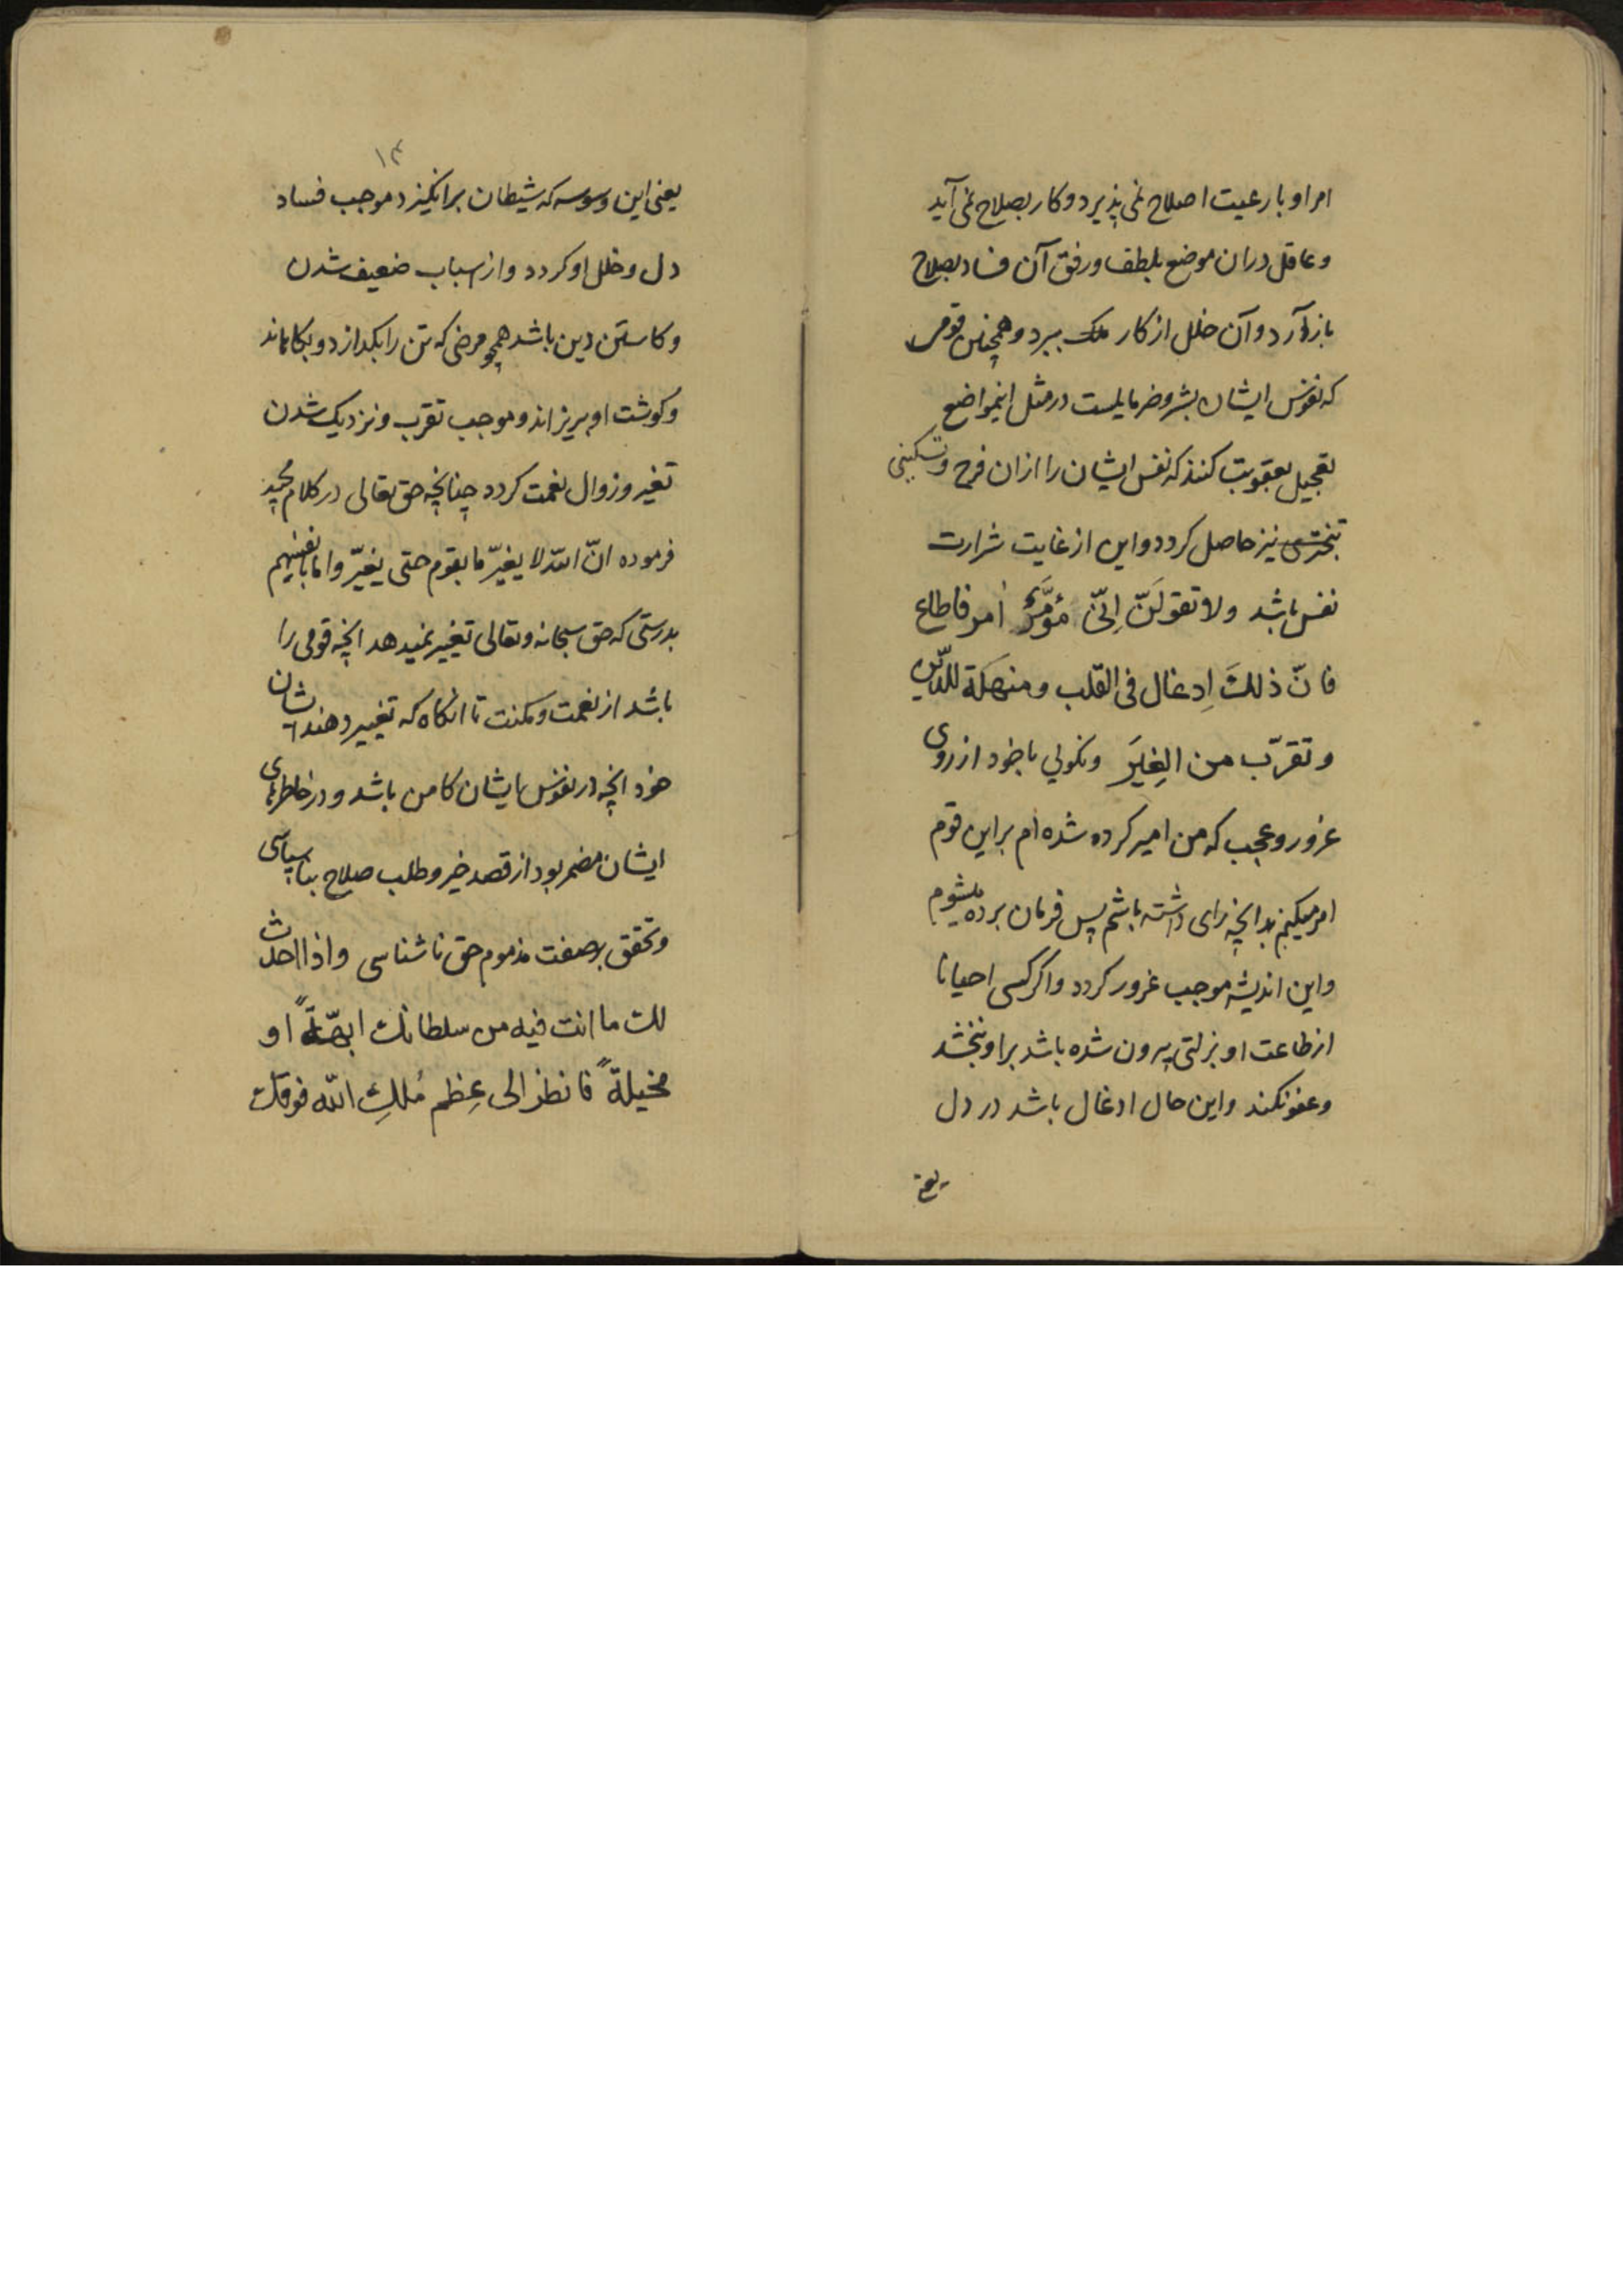 امر او با رعیت اصلاح نمی پذیرد و کار بصلاح نمی آید
و عاقل در ان موضع بلطف و رفق آن فساد بصلاح
باز آرد و آن خلل از کار ملک ببرد و همچنین قومی
که نفوس ایشان بشر و ضر مایلست در مثل اینمواضع
تعجیل بعقوبت کنند که نفس ایشان را ازان فرح و تسکینی
نیز حاصل کردد و این از غایت شرارت
نفس باشد ولا تقولَنّ اِنّی مُؤَمَّرٌ اٰمر فاطاع
فانّ ذلكَ اِدغال فی القلب و منهكة للدّین
و تقرّب من الغِیَر و نکوئی با خود از روی
غرور و عجب که من امیر کرده شده ام بر این قوم
امر میکنم بدانچه رای داشته باشم پس فرمان برده میشوم
و این اندیشه موجب غرور کردد و اکر کسی احیانا
از طاعت او بزلتی بیرون شده باشد بر او نبخشد
و عفو نکند و این حال ادغال باشد در دل
یعنی
۱۳
یعنی این وسوسه که شیطان بر انکیزد موجب فساد
دل و خلل او کردد و از اسباب ضعیف شدن
و کاستن دین باشد همچو مرضی که تن را بکدازد و بکاهاند
و کوشت او بریزاند و موجب تقرب و نزدیک شدن
تغیر و زوال نعمت کردد چنانچه حق تعالی در کلام مجید
فرموده انّ اللّه لا یغیّر ما بقوم حتی یغیّروا ما بانفسهم
بدرستی که حق سبحانه و تعالی تغییر نمیدهد انچه قومی را
باشد از نعمت و مکنت تا انکاه که تغییر دهند ایشان
خود انچه در نفوس ایشان کامن باشد و در خاطرهای
ایشان مضمر بود از قصد خیر و طلب صلاح بناسپاسی
و تحقق بر صفت مذموم حق ناشناسی و اذا احدث
لك ما انت فیه من سلطانك ابهّةً او
مخیلةً فانظر الی عِظم مُلكِ اللّه فوقك